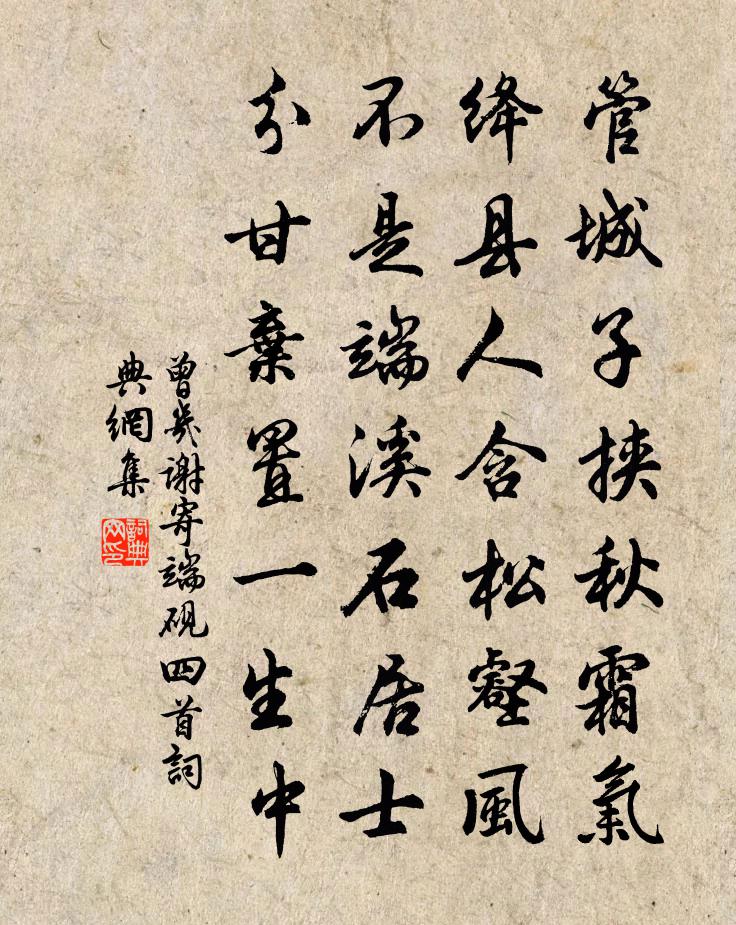 管城子挾秋霜氣
绛县人含松壑風
不是端溪石居士
分甘棄置一生中
曾幾谢寄端硯四首詞
典網集
詞典
网印